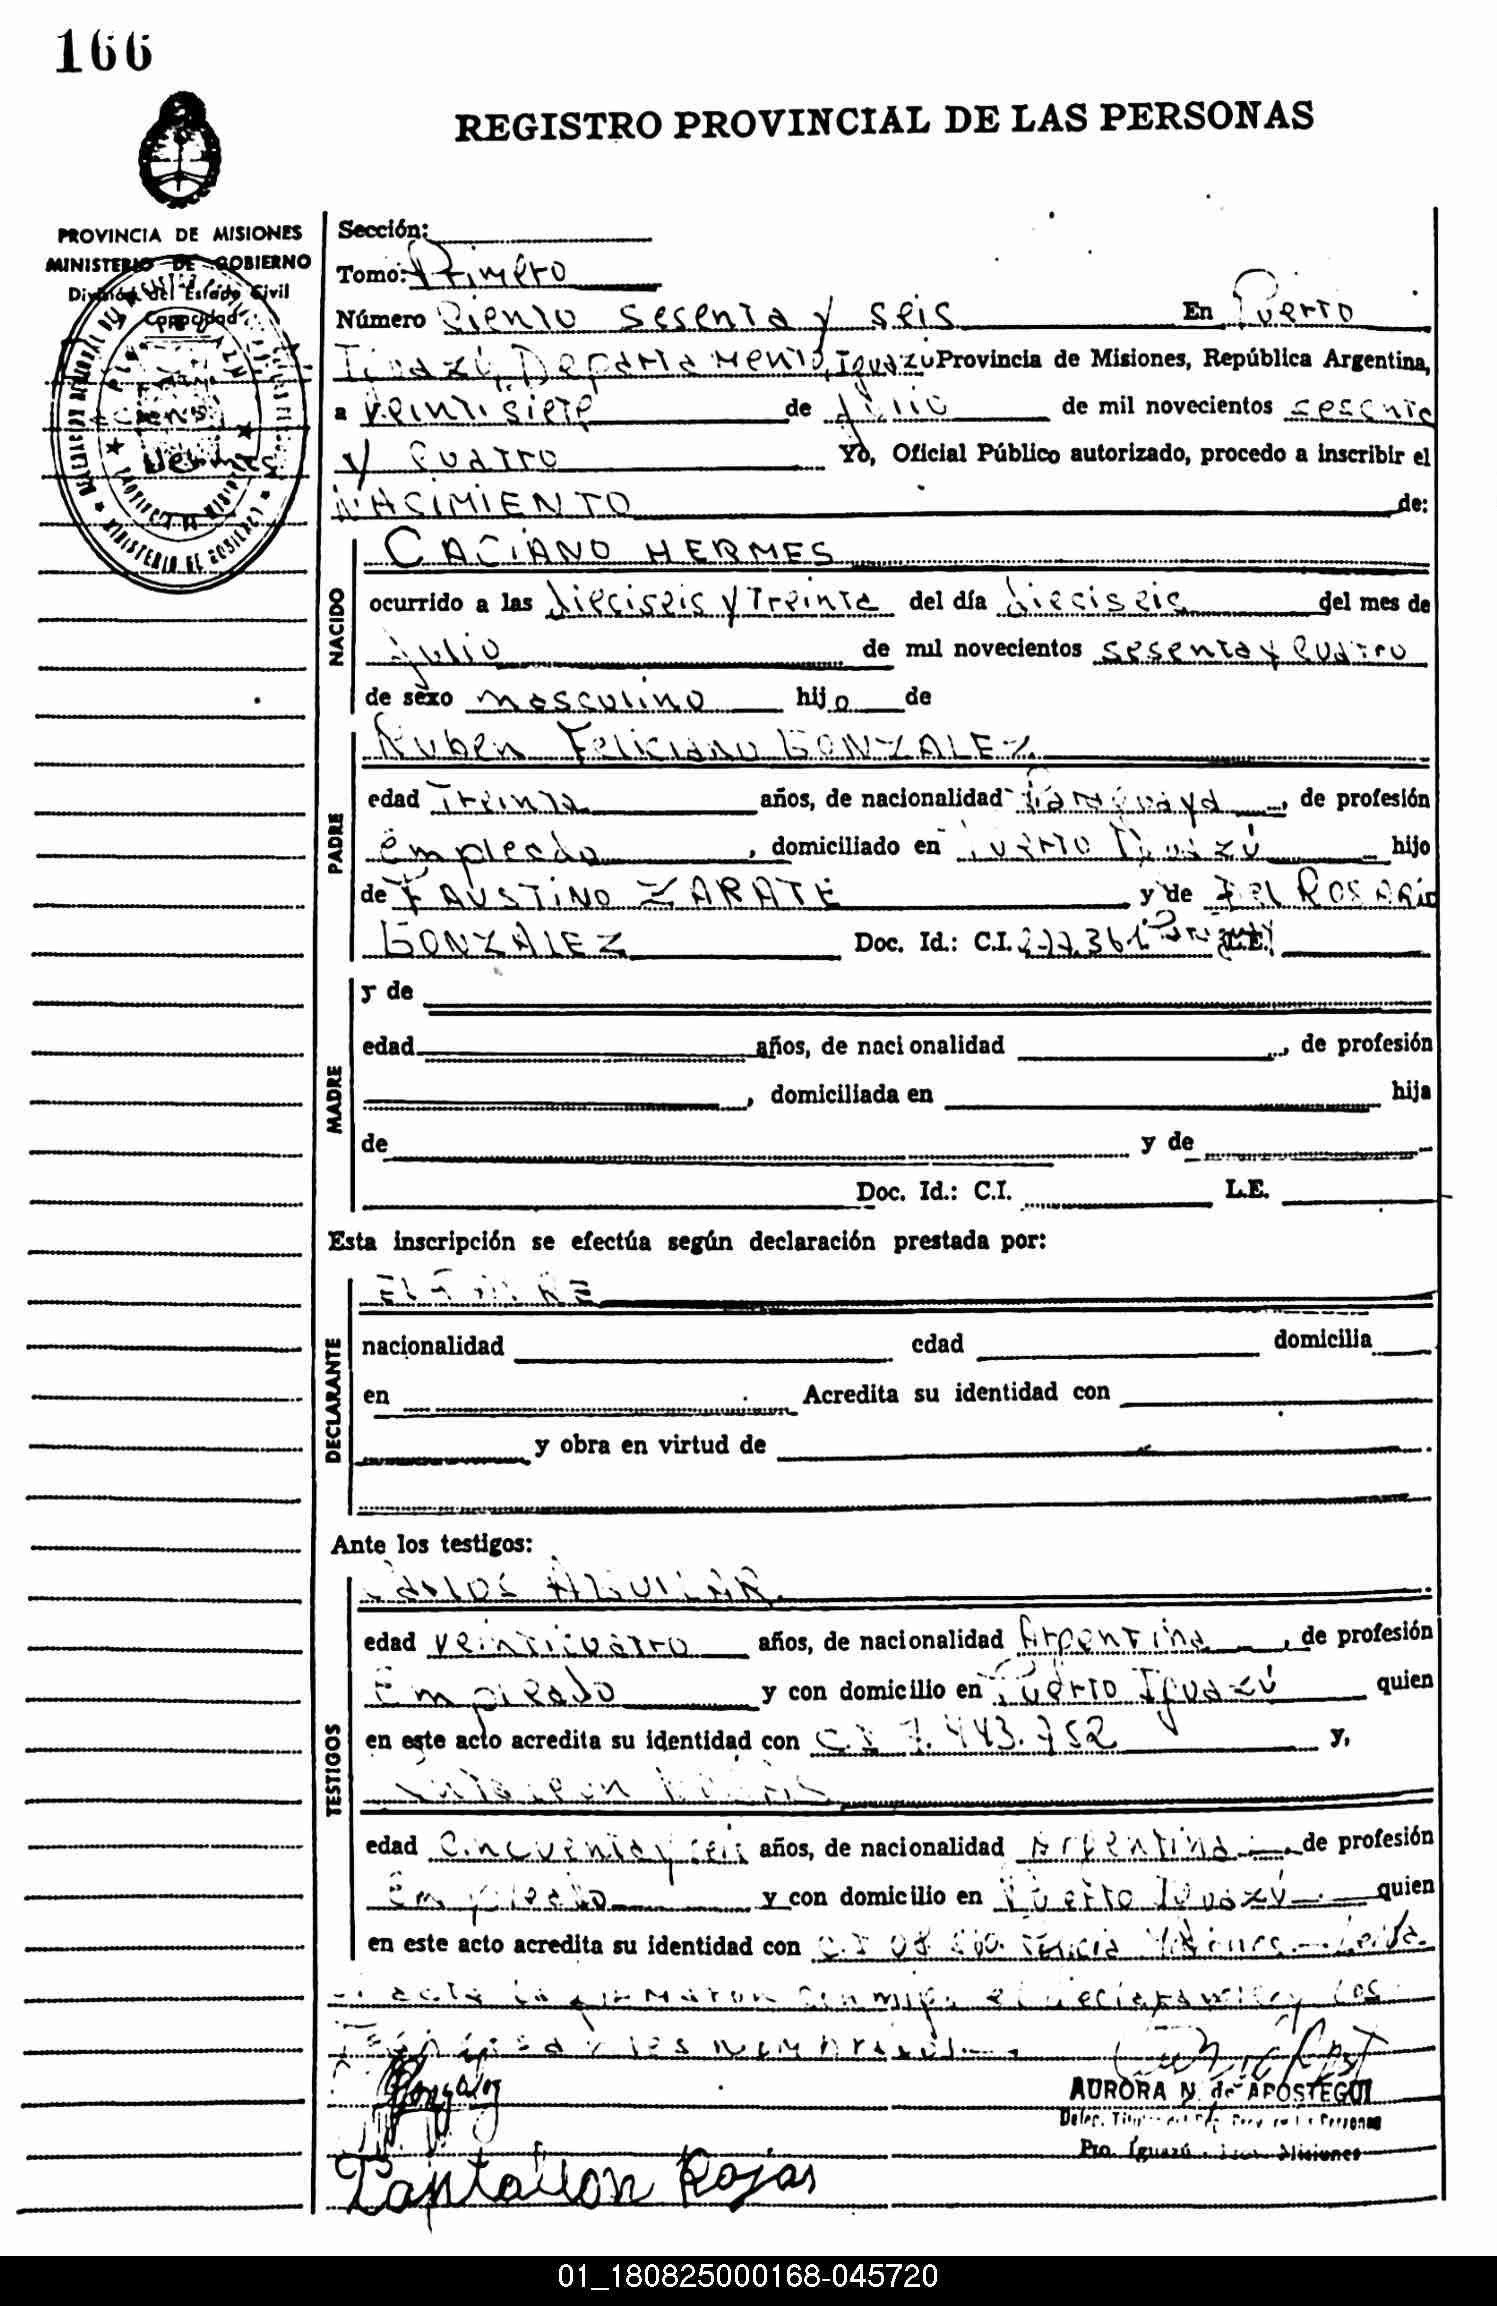 166
REGISTRO PROVINCIAL DE LAS PERSONAS
PROVINCIA DE MISIONES
MINISTERIO DE GOBIERNO
División del Estado Civil
Capacidad
Sección:
Tomo: Primero
Número Ciento sesenta y seis En Puerto
Iguazú, Departamento Iguazú Provincia de Misiones, República Argentina,
a veintisiete de julio de mil novecientos sesenta
y cuatro Yo, Oficial Público autorizado, procedo a inscribir el
NACIMIENTO de:
NACIDO
CACIANO HERMES
ocurrido a las dieciseis y treinta del día dieciseis del mes de
julio de mil novecientos sesenta y cuatro
de sexo masculino hijo de
PADRE
Ruben Feliciano GONZALEZ
edad treinta años, de nacionalidad Paraguaya, de profesión
empleado, domiciliado en Puerto Iguazú hijo
de FAUSTINO ZARATE y de Del ROSARIO
GONZALEZ Doc. Id.: C.I. 277.361 L.E.
MADRE
y de
edad años, de nacionalidad , de profesión
, domiciliada en hija
de y de
Doc. Id.: C.I. L.E.
Esta inscripción se efectúa según declaración prestada por:
DECLARANTE
El PADRE
nacionalidad edad domicilia
en Acredita su identidad con
y obra en virtud de
Ante los testigos:
TESTIGOS
Carlos AGUILAR
edad veinticuatro años, de nacionalidad Argentina, de profesión
Empleado y con domicilio en Puerto Iguazú quien
en este acto acredita su identidad con C.I 7.443.752 y,
edad Cincuenta y seis años, de nacionalidad Argentina, de profesión
Empleado y con domicilio en Puerto Iguazú quien
en este acto acredita su identidad con C.I Leída
el acta la firmaron conmigo el declarante y los
Gonzalez
AURORA N. de APOSTEGUI
Pto. Iguazú Misiones
Pantaleon Rojas
01_180825000168-045720